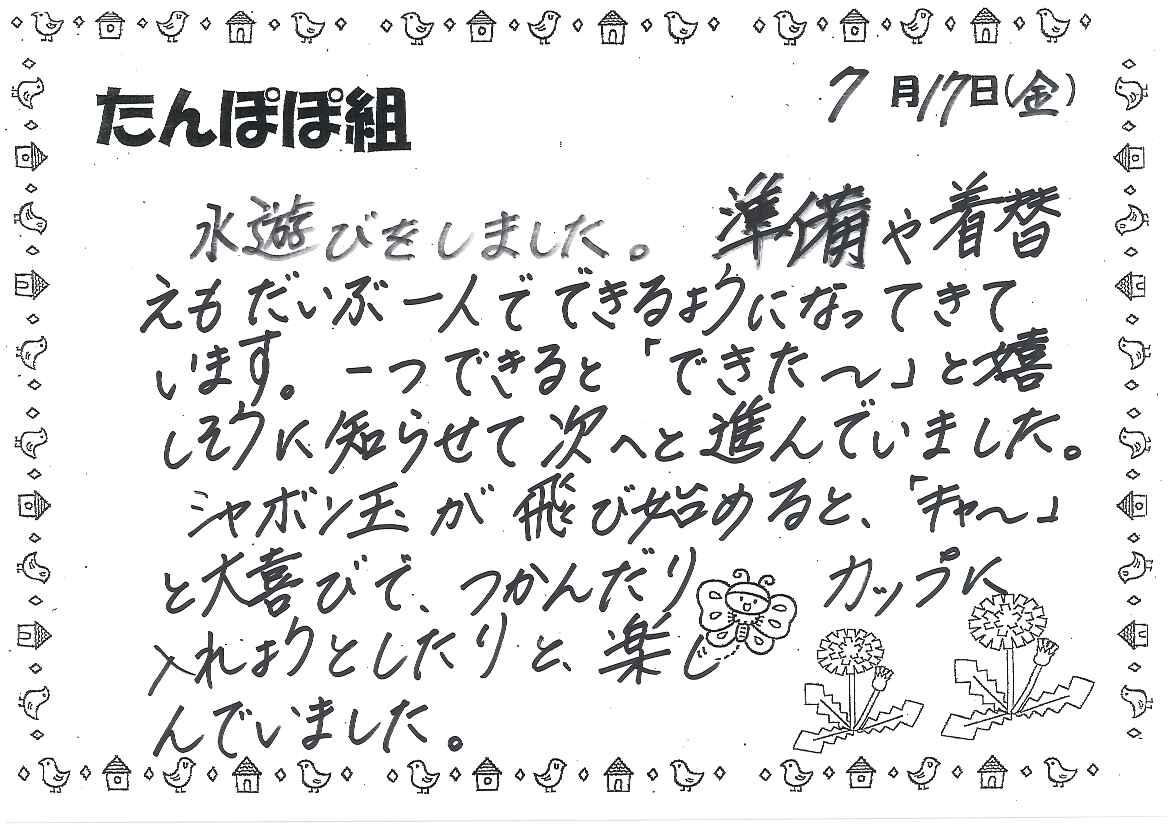 たんぽぽ組
7月17日(金)
水遊びをしました。準備や着替
えもだいぶ一人でできるようになってきて
います。一つできると「できた〜」と嬉
しそうに知らせて次へと進んでいました。
シャボン玉が飛び始めると、「キャ〜」
と大喜びで、つかんだり カップに
入れようとしたりと、楽し
んでいました。